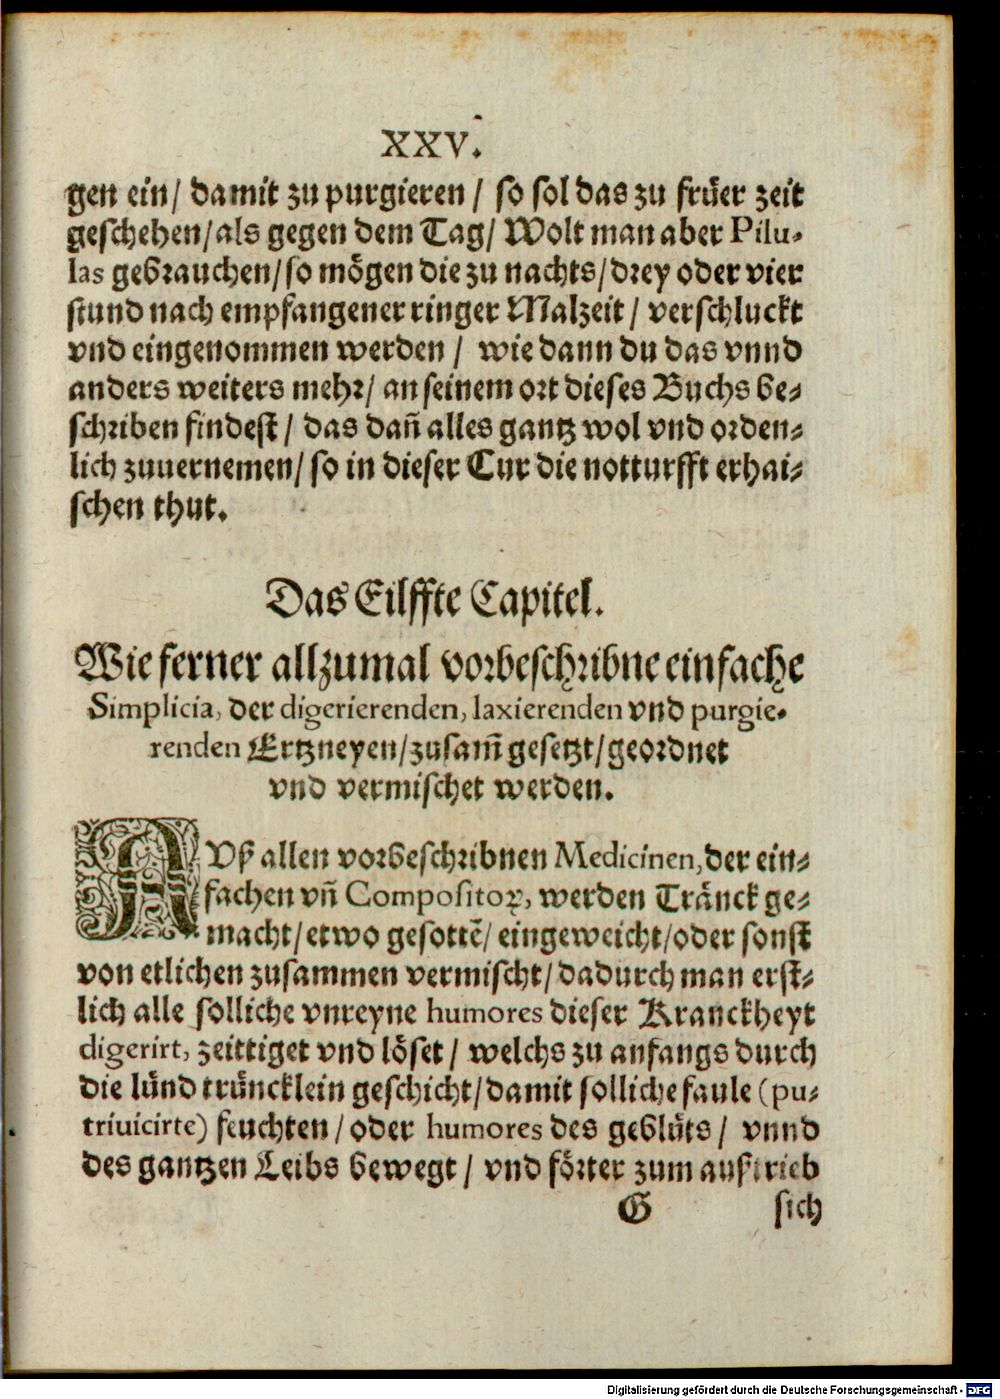 XXV.
gen ein/ damit zu purgieren / so sol das zu früer zeit
geschehen/als gegen dem Tag/ Wolt man aber Pilu-
las gebrauchen/so mögen die zu nachts/drey oder vier
stund nach empfangener ringer Malzeit / verschluckt
vnd eingenommen werden / wie dann du das vnnd
anders weiters mehr/ an seinem ort dieses Buchs be-
schriben findest / das dañ alles gantz wol vnd orden-
lich zuuernemen/ so in dieser Cur die notturfft erhai-
schen thut.
Das Eilffte Capitel.
Wie ferner allzumal vorbeschribne einfache
Simplicia, der digerierenden, laxierenden vnd purgie-
renden Ertzneyen/zusam̃ gesetzt/geordnet
vnd vermischet werden.
AVß allen vorbeschribnen Medicinen, der ein-
fachen vñ Compositoꝝ, werden Tränck ge-
macht/ etwo gesottẽ/ eingeweicht/oder sonst
von etlichen zusammen vermischt/ dadurch man erst-
lich alle solliche vnreyne humores dieser Kranckheyt
digerirt, zeittiget vnd löset / welchs zu anfangs durch
die lünd trüncklein geschicht/damit solliche faule (pu-
triuicirte) feuchten / oder humores des geblüts / vnnd
des gantzen Leibs bewegt / vnd förter zum außtrieb
G sich
Digitalisierung gefördert durch die Deutsche Forschungsgemeinschaft - DFG